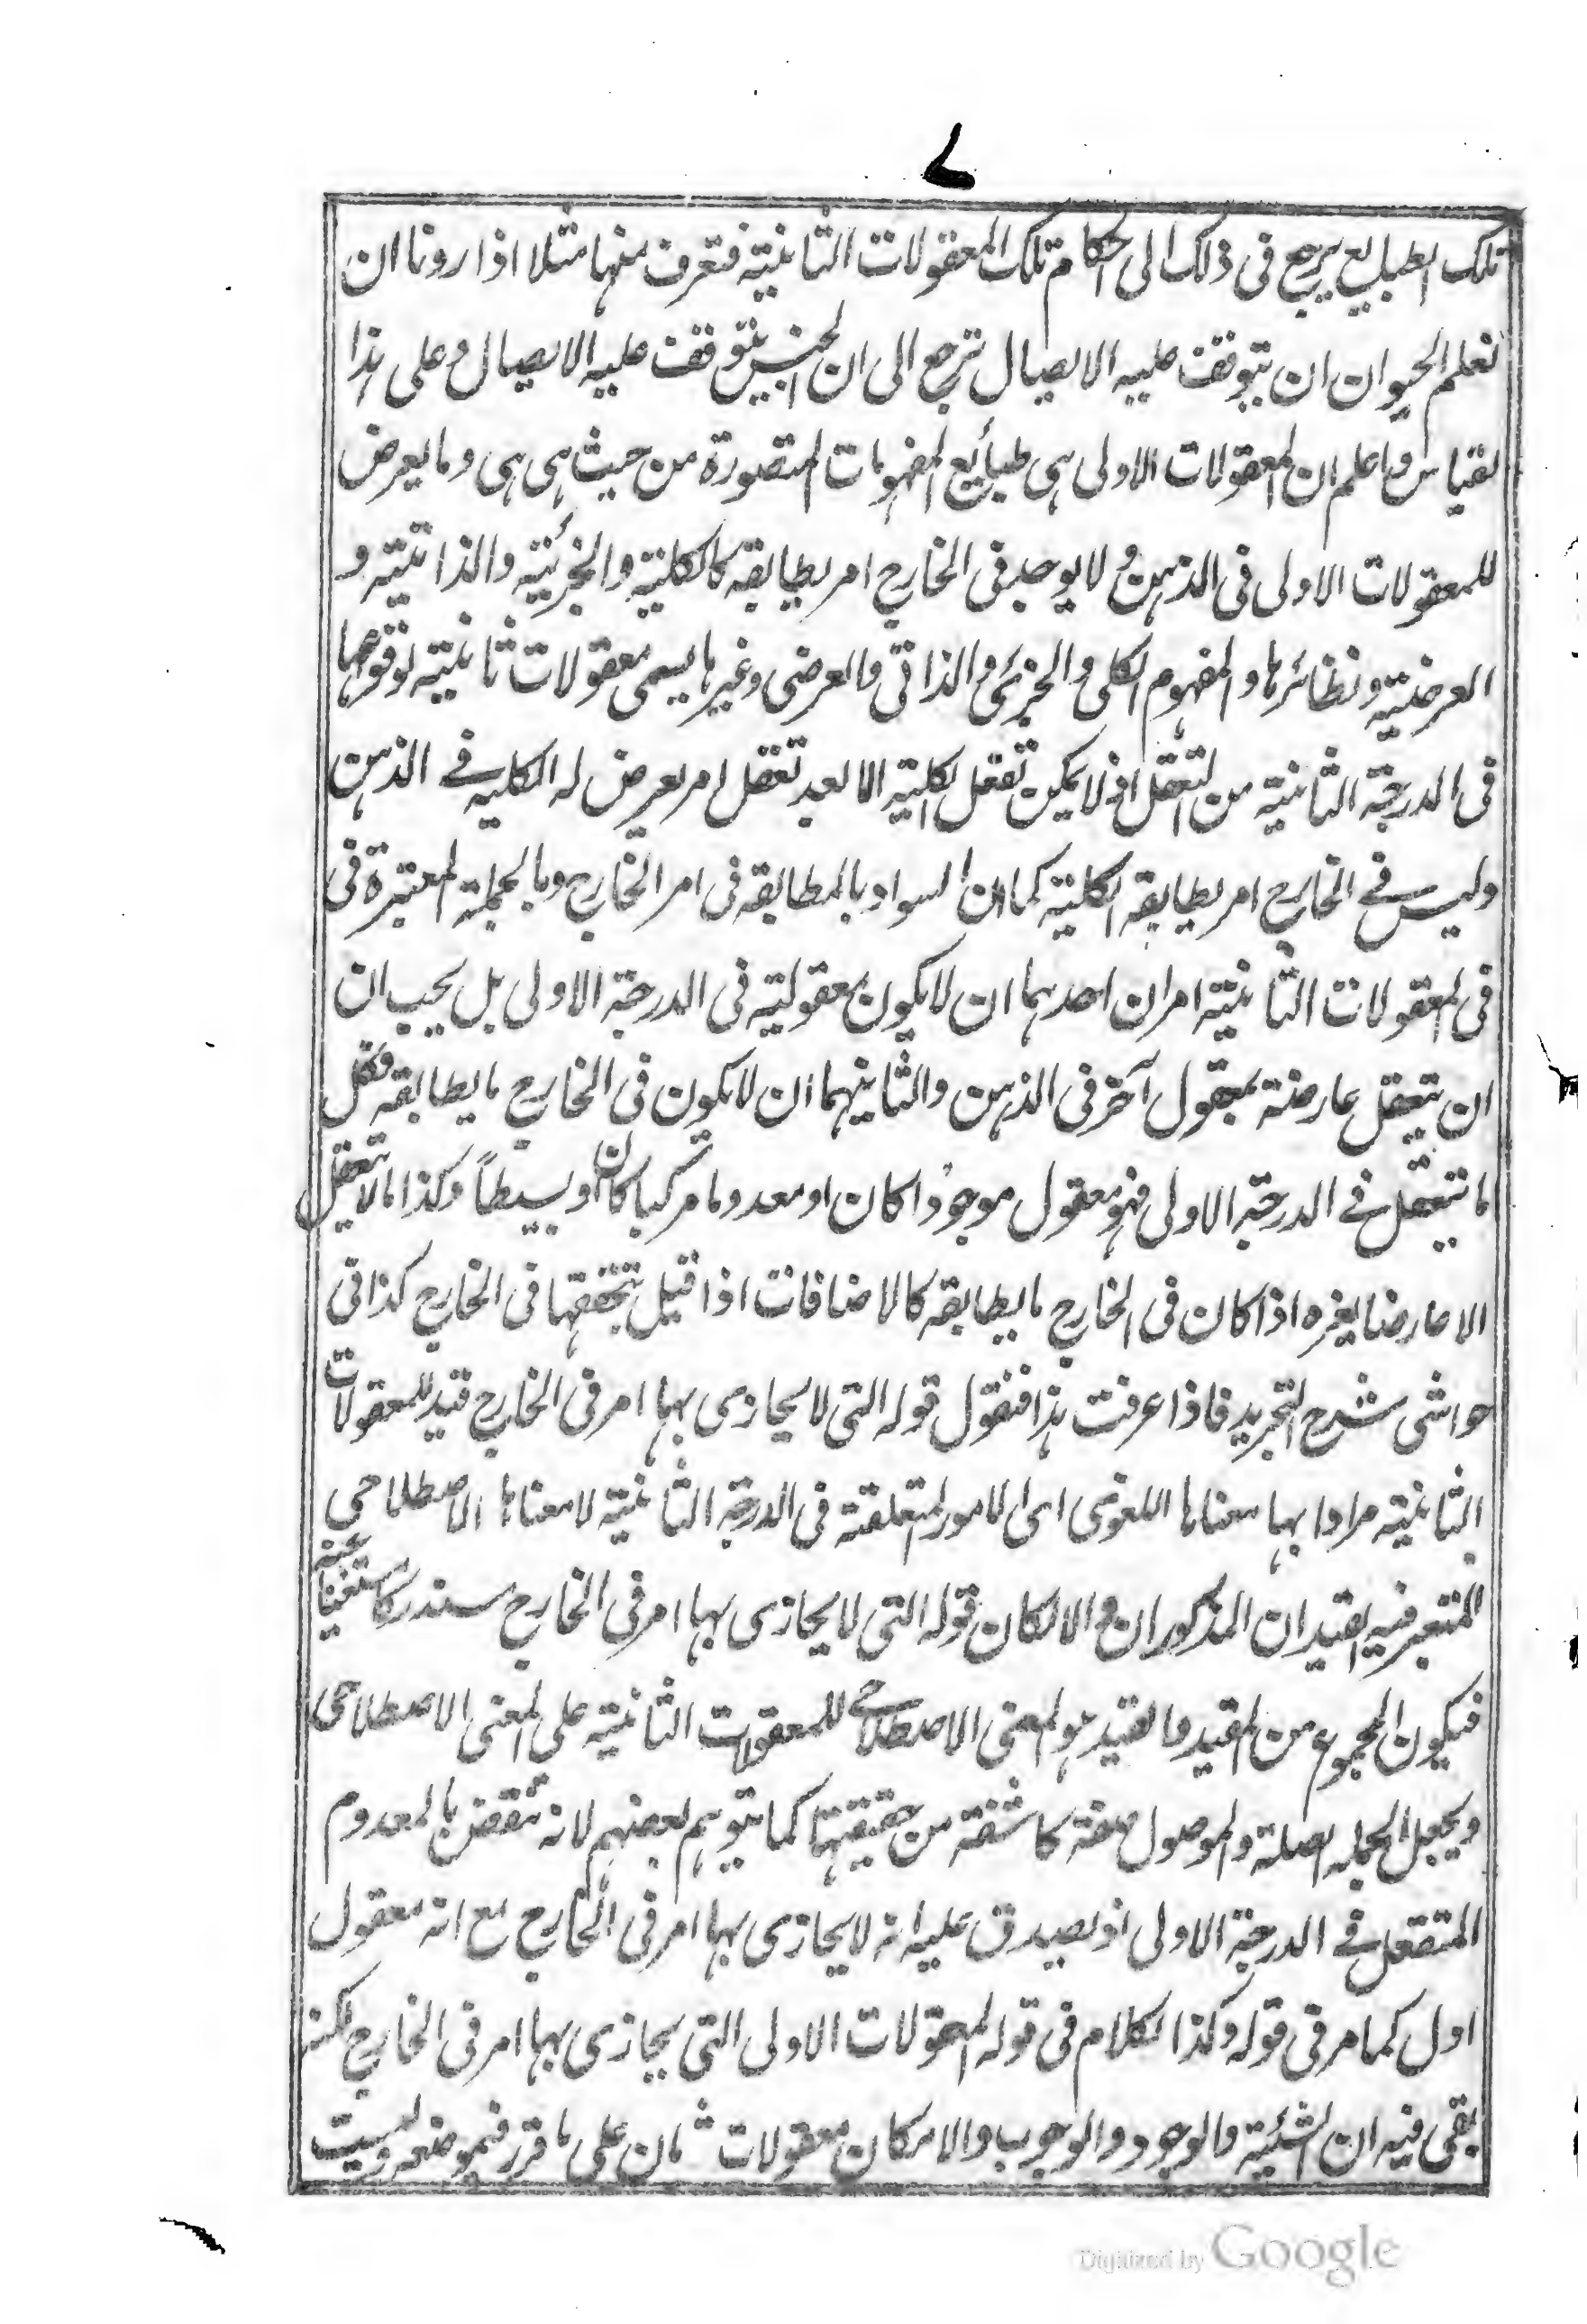 تلك الطبايع يرجع فى ذلك الى احكام تلك المعقولات الثانية فتعرف منها مثلا اذا رونا ان
نعلم الحيوان ان يتوقف عليه الايصال نرجع الى ان الجنس يتوقف عليه الايصال وعلى هذا
لقياس واعلم ان المعقولات الاولى هى طبائع المفهومات المتصورة من حيث هى هى وما يعرض
للمعقولات الاولى فى الذهن ولا يوجد فى الخارج امر يطابقه كالكلية والجزئية والذاتية و
العرضية ونظائرها والمفهوم الكلى والجزئى والذاتى والعرضى وغيرها يسمى معقولات ثانية لوقوعها
فى الدرجة الثانية من التعقل اذ لا يمكن تعقل الكلية الا بعد تعقل امر يعرض له الكليه فے الذهن
وليس فے الخارج امر يطابقه الكلية كما ان السواد بالمطابقه فى امر الخارج وبالجملة المعتبرة فى
فى المعقولات الثانية امران احدهما ان لا يكون معقولية فى الدرجة الاولى بل يجب ان
ان يتعقل عارضة لمعقول آخر فى الذهن والثانيهما ان لا يكون فى الخارج ما يطابقه فكل
ما يتعقل فے الدرجة الاولى فهو معقول موجودا كان او معدوما مركبا كان او بسيطاً وكذا مالا يتعقل
الا عارضا لغيره اذا كان فى الخارج ما يطابقه كالاضافات اذا قيل بتحققها فى الخارج كذا فى
حواشى شرح التجريد فاذا عرفت هذا فنقول قوله التى لا يحاذى بها امر فى الخارج قيد للمعقولات
الثانية مرادا بها معناها اللغوى اى الامور المتعلقة فى الدرجة الثانية لا معناها الاصطلاحى
المعتبر فيه القيدان المذكوران والا لكان قوله التى لا يحاذى بها امر فى الخارج مستدركا مستغنيا عنه
فيكون المجموع من المقيد والقيد هو المعنى الاصطلاحے للمعقولات الثانية على المعنى الاصطلاحى
ويجعل الجملة صلة والموصول صفة كاشفة من حقيقتها كما يتوهم بعضهم لانه تنقض بالمعدوم
المتعقل فے الدرجة الاولى اذ يصدق عليه انه لا يحاذى بها امر فى الخارج مع انه معقول
اول كما مر فى قوله وكذا الكلام فى قوله المعقولات الاولى التى يحاذى بها امر فى الخارج لكنه
بقى فيه ان الشيئية والوجود والوجوب والامكان معقولات ثان على ما قرر فى موضعه وليست
Digitized by Google